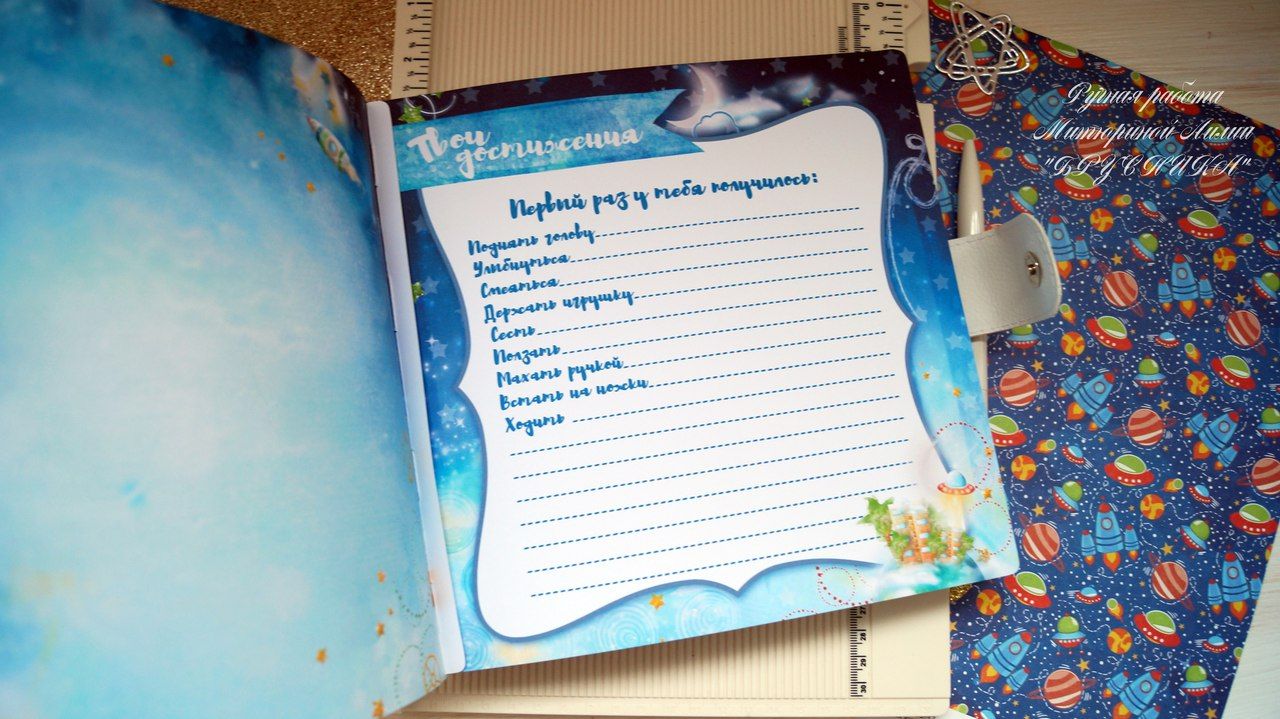 Твои
достижения
Первый раз у тебя получилось:
Поднять голову
Улыбнуться
Смеяться
Держать игрушку
Сесть
Ползать
Махать ручкой
Встать на ножки
Ходить
Ручная работа
Миториной Лилии
"БРУСНИКА"